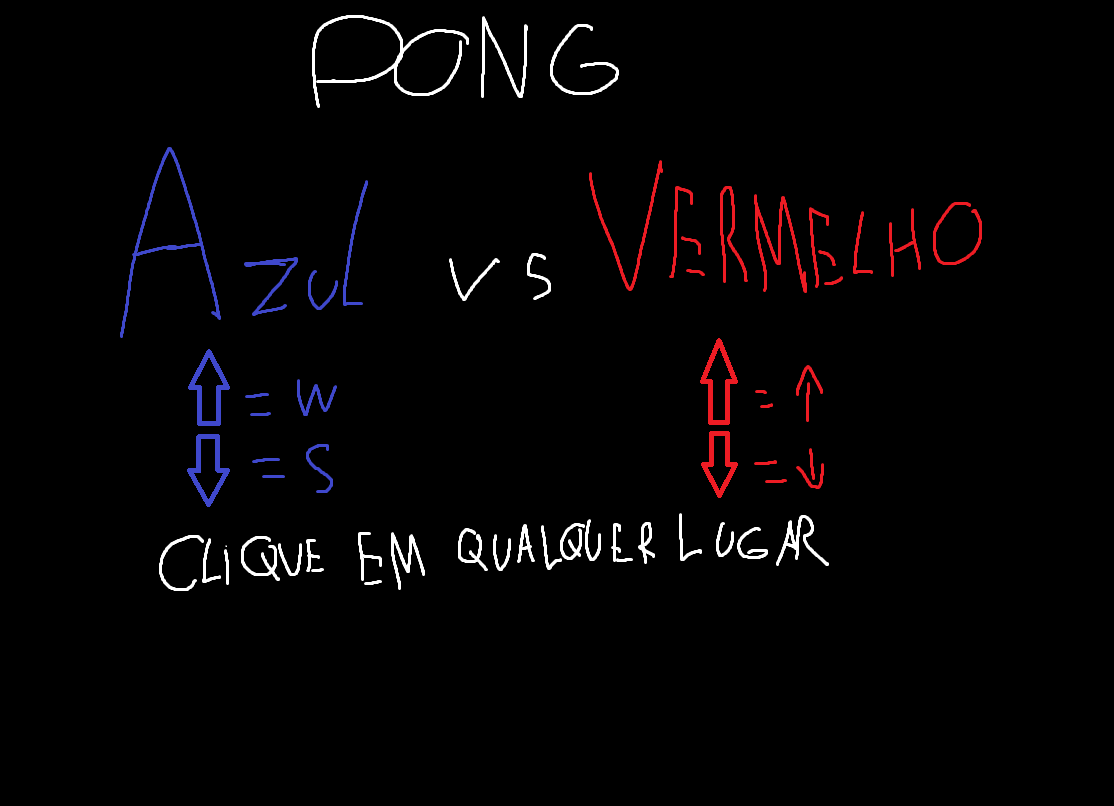 PONG
AZUL VS VERMELHO
= W = ↑
= S = ↓
CLIQUE EM QUALQUER LUGAR